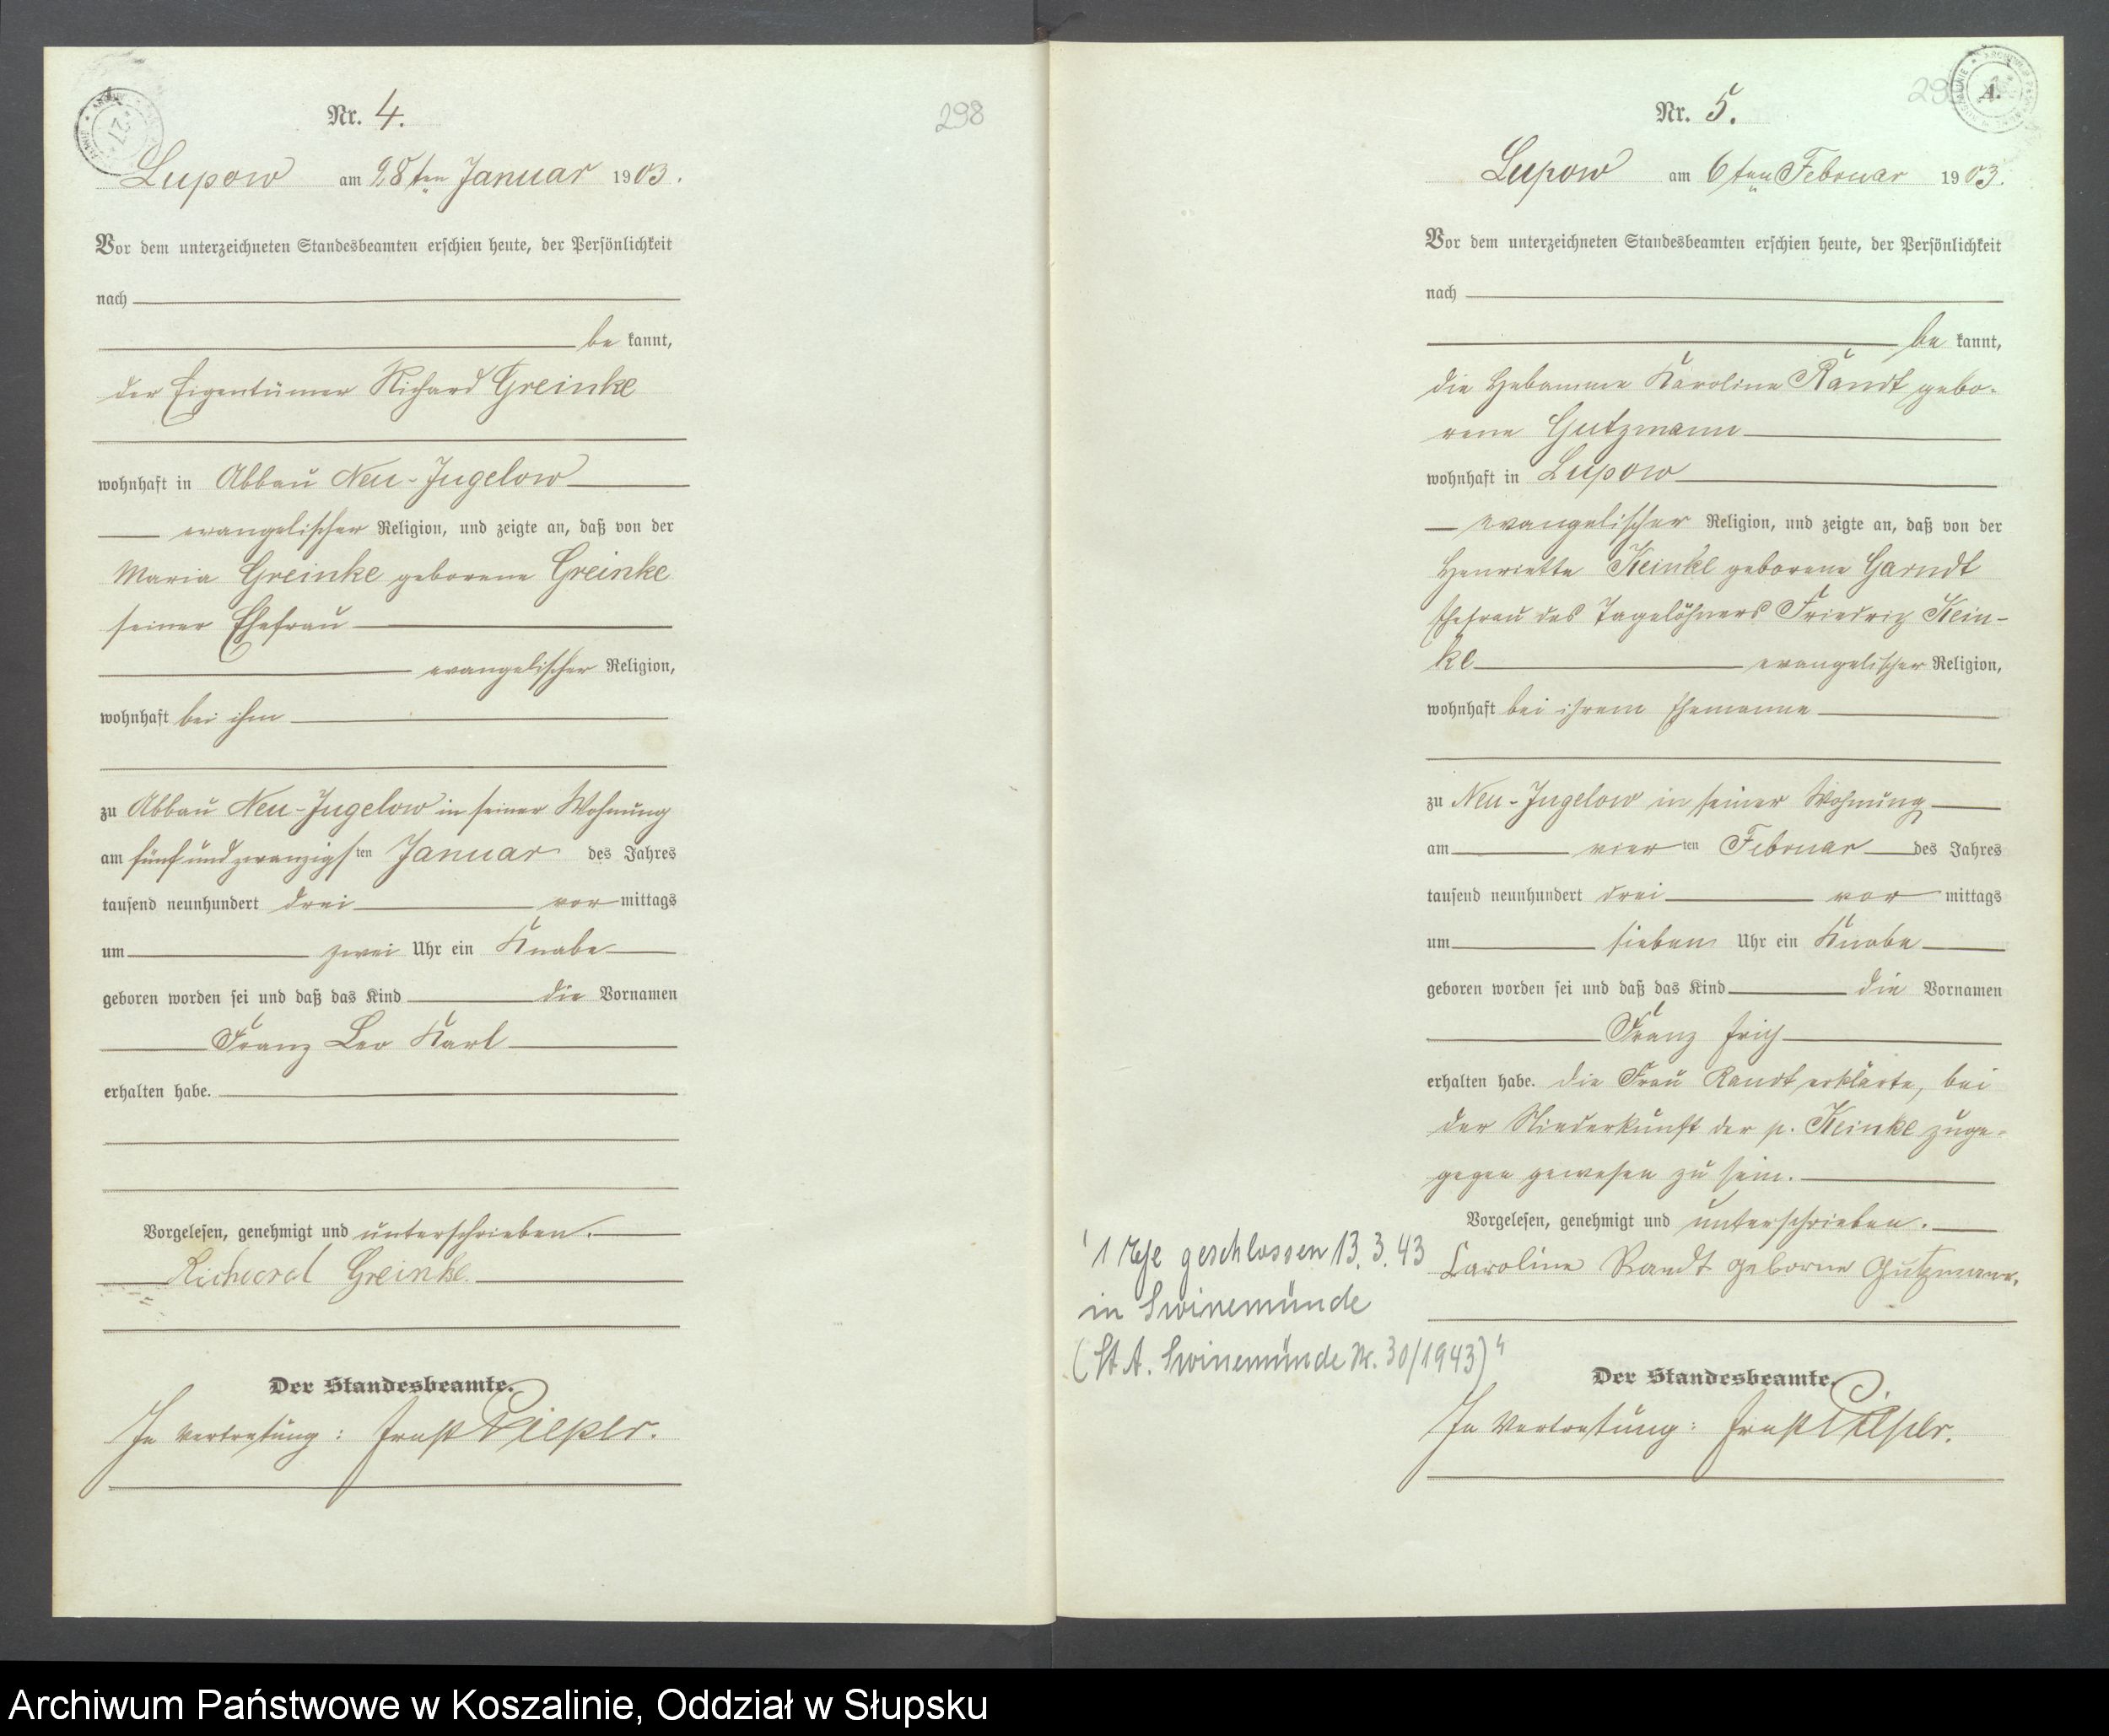 Nr. 4.
298
Lupow am 28ten Januar 1903.
Vor dem unterzeichneten Standesbeamten erschien heute, der Persönlichkeit
nach
be kannt,
der Eigentümer Richard Greinke
wohnhaft in Abbau Neu-Jugelow
evangelischer Religion, und zeigte an, daß von der
Maria Greinke geborene Greinke
seiner Ehefrau
evangelischer Religion,
wohnhaft bei ihm
zu Abbau Neu-Jugelow in seiner Wohnung
am fünf und zwanzigsten Januar des Jahres
tausend neunhundert drei vor mittags
um zwei Uhr ein Knabe
geboren worden sei und daß das Kind die Vornamen
Franz Leo Karl
erhalten habe.
Vorgelesen, genehmigt und unterschrieben.
Richard Greinke.
Der Standesbeamte.
In Vertretung: Ernst Pieper.
Nr. 5.
Lupow am 6ten Februar 1903.
Vor dem unterzeichneten Standesbeamten erschien heute, der Persönlichkeit
nach
be kannt,
die Hebamme Karoline Randt gebo-
rene Gutzmann
wohnhaft in Lupow
evangelischer Religion, und zeigte an, daß von der
Henriette Keinke geborene Garndt
Ehefrau des Tagelöhners Friedrich Kein-
ke evangelischer Religion,
wohnhaft bei ihrem Ehemanne
zu Neu-Jugelow in seiner Wohnung
am vierten Februar des Jahres
tausend neunhundert drei vor mittags
um sieben Uhr ein Knabe
geboren worden sei und daß das Kind die Vornamen
Franz Erich
erhalten habe. Die Frau Randt erklärte, bei
der Niederkunft der p. Keinke zuge-
gegen gewesen zu sein.
Vorgelesen, genehmigt und unterschrieben.
Caroline Randt geborne Gutzmann.
Der Standesbeamte.
In Vertretung: Ernst Pieper.
"1 Ehe geschlossen 13.3.43
in Swinemünde
(St.A. Swinemünde Nr. 30/1943)"
Archiwum Państwowe w Koszalinie, Oddział w Słupsku